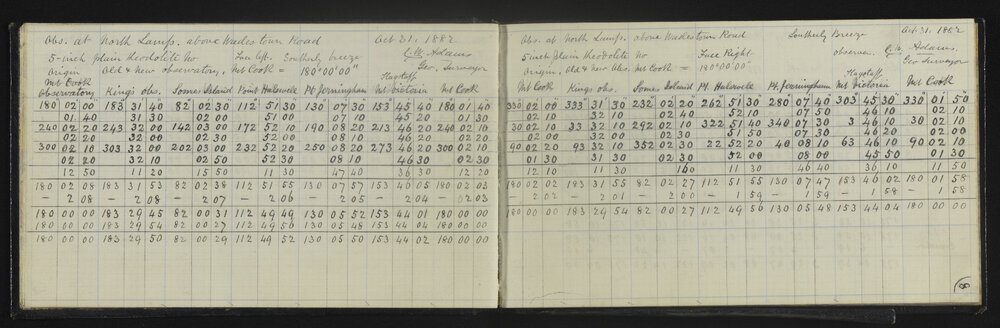 Obs. at North Lamp. above Wadestown Road Oct 31. 1882
5-inch plain theodolite No Face left. Southerly breeze C.W. Adams
Origin Old & new observatory, Mt Cook = 180°00'00" Geo. Surveyor
Flagstaff
Mt Cook
Observatory King's obs. Somes Island Point Halswell Pt Jerningham Mt Victoria Mt Cook
180 02 00 183 31 40 82 02 30 112 51 30 130 07 30 153 45 40 180 01 40
01 40 31 30 02 00 51 00 07 10 45 20 01 30
240 02 20 243 32 00 142 03 00 172 52 10 190 08 20 213 46 20 240 02 10
02 20 32 00 02 30 52 00 08 10 46 20 02 20
300 02 10 303 32 00 202 03 00 232 52 20 250 08 20 273 46 20 300 02 10
02 20 32 10 02 50 52 30 08 10 46 30 02 30
12 50 11 20 15 50 11 30 47 40 36 30 12 20
180 02 08 183 31 53 82 02 38 112 51 55 130 07 57 153 46 05 180 02 03
- 2 08 - 2 08 - 2 07 - 2 06 - 2 05 - 2 04 - 02 03
180 00 00 183 29 45 82 00 31 112 49 49 130 05 52 153 44 01 180 00 00
180 00 00 183 29 54 82 00 27 112 49 56 130 05 48 153 44 04 180 00 00
180 00 00 183 29 50 82 00 29 112 49 52 130 05 50 153 44 02 180 00 00
Obs. at North Lamp. above Wadestown Road Southerly Breeze Oct 31. 1882
5 inch plain theodolite No Face Right observer. C.W. Adams
Origin, Old & new Obs. Mt Cook = 180°00'00" Geo Surveyor
Flagstaff
Mt Cook Kings obs. Somes Island Pt. Halswell Pt. Jerningham Mt Victoria Mt Cook
330 02 00 333 31 30 232 02 20 262 51 30 280 07 40 303 45 30 330 01 50
02 10 32 10 02 40 52 10 07 50 46 10 02 10
30 02 10 33 32 10 292 02 10 322 51 40 340 07 30 3 46 10 30 02 10
02 20 32 00 02 30 51 50 07 30 46 20 02 00
90 02 20 93 32 10 352 02 30 22 52 20 40 08 10 63 46 10 90 02 10
01 30 31 30 02 30 52 00 08 00 45 50 01 30
12 10 11 30 11 30 46 40 36 10 11 50
180 02 02 183 31 55 82 02 27 112 51 55 130 07 47 153 46 02 180 01 58
- 2 02 - 2 01 - 2 00 - 1 59 - 1 59 - 1 58 - 1 58
180 00 00 183 29 54 82 00 27 112 49 56 130 05 48 153 44 04 180 00 00
8